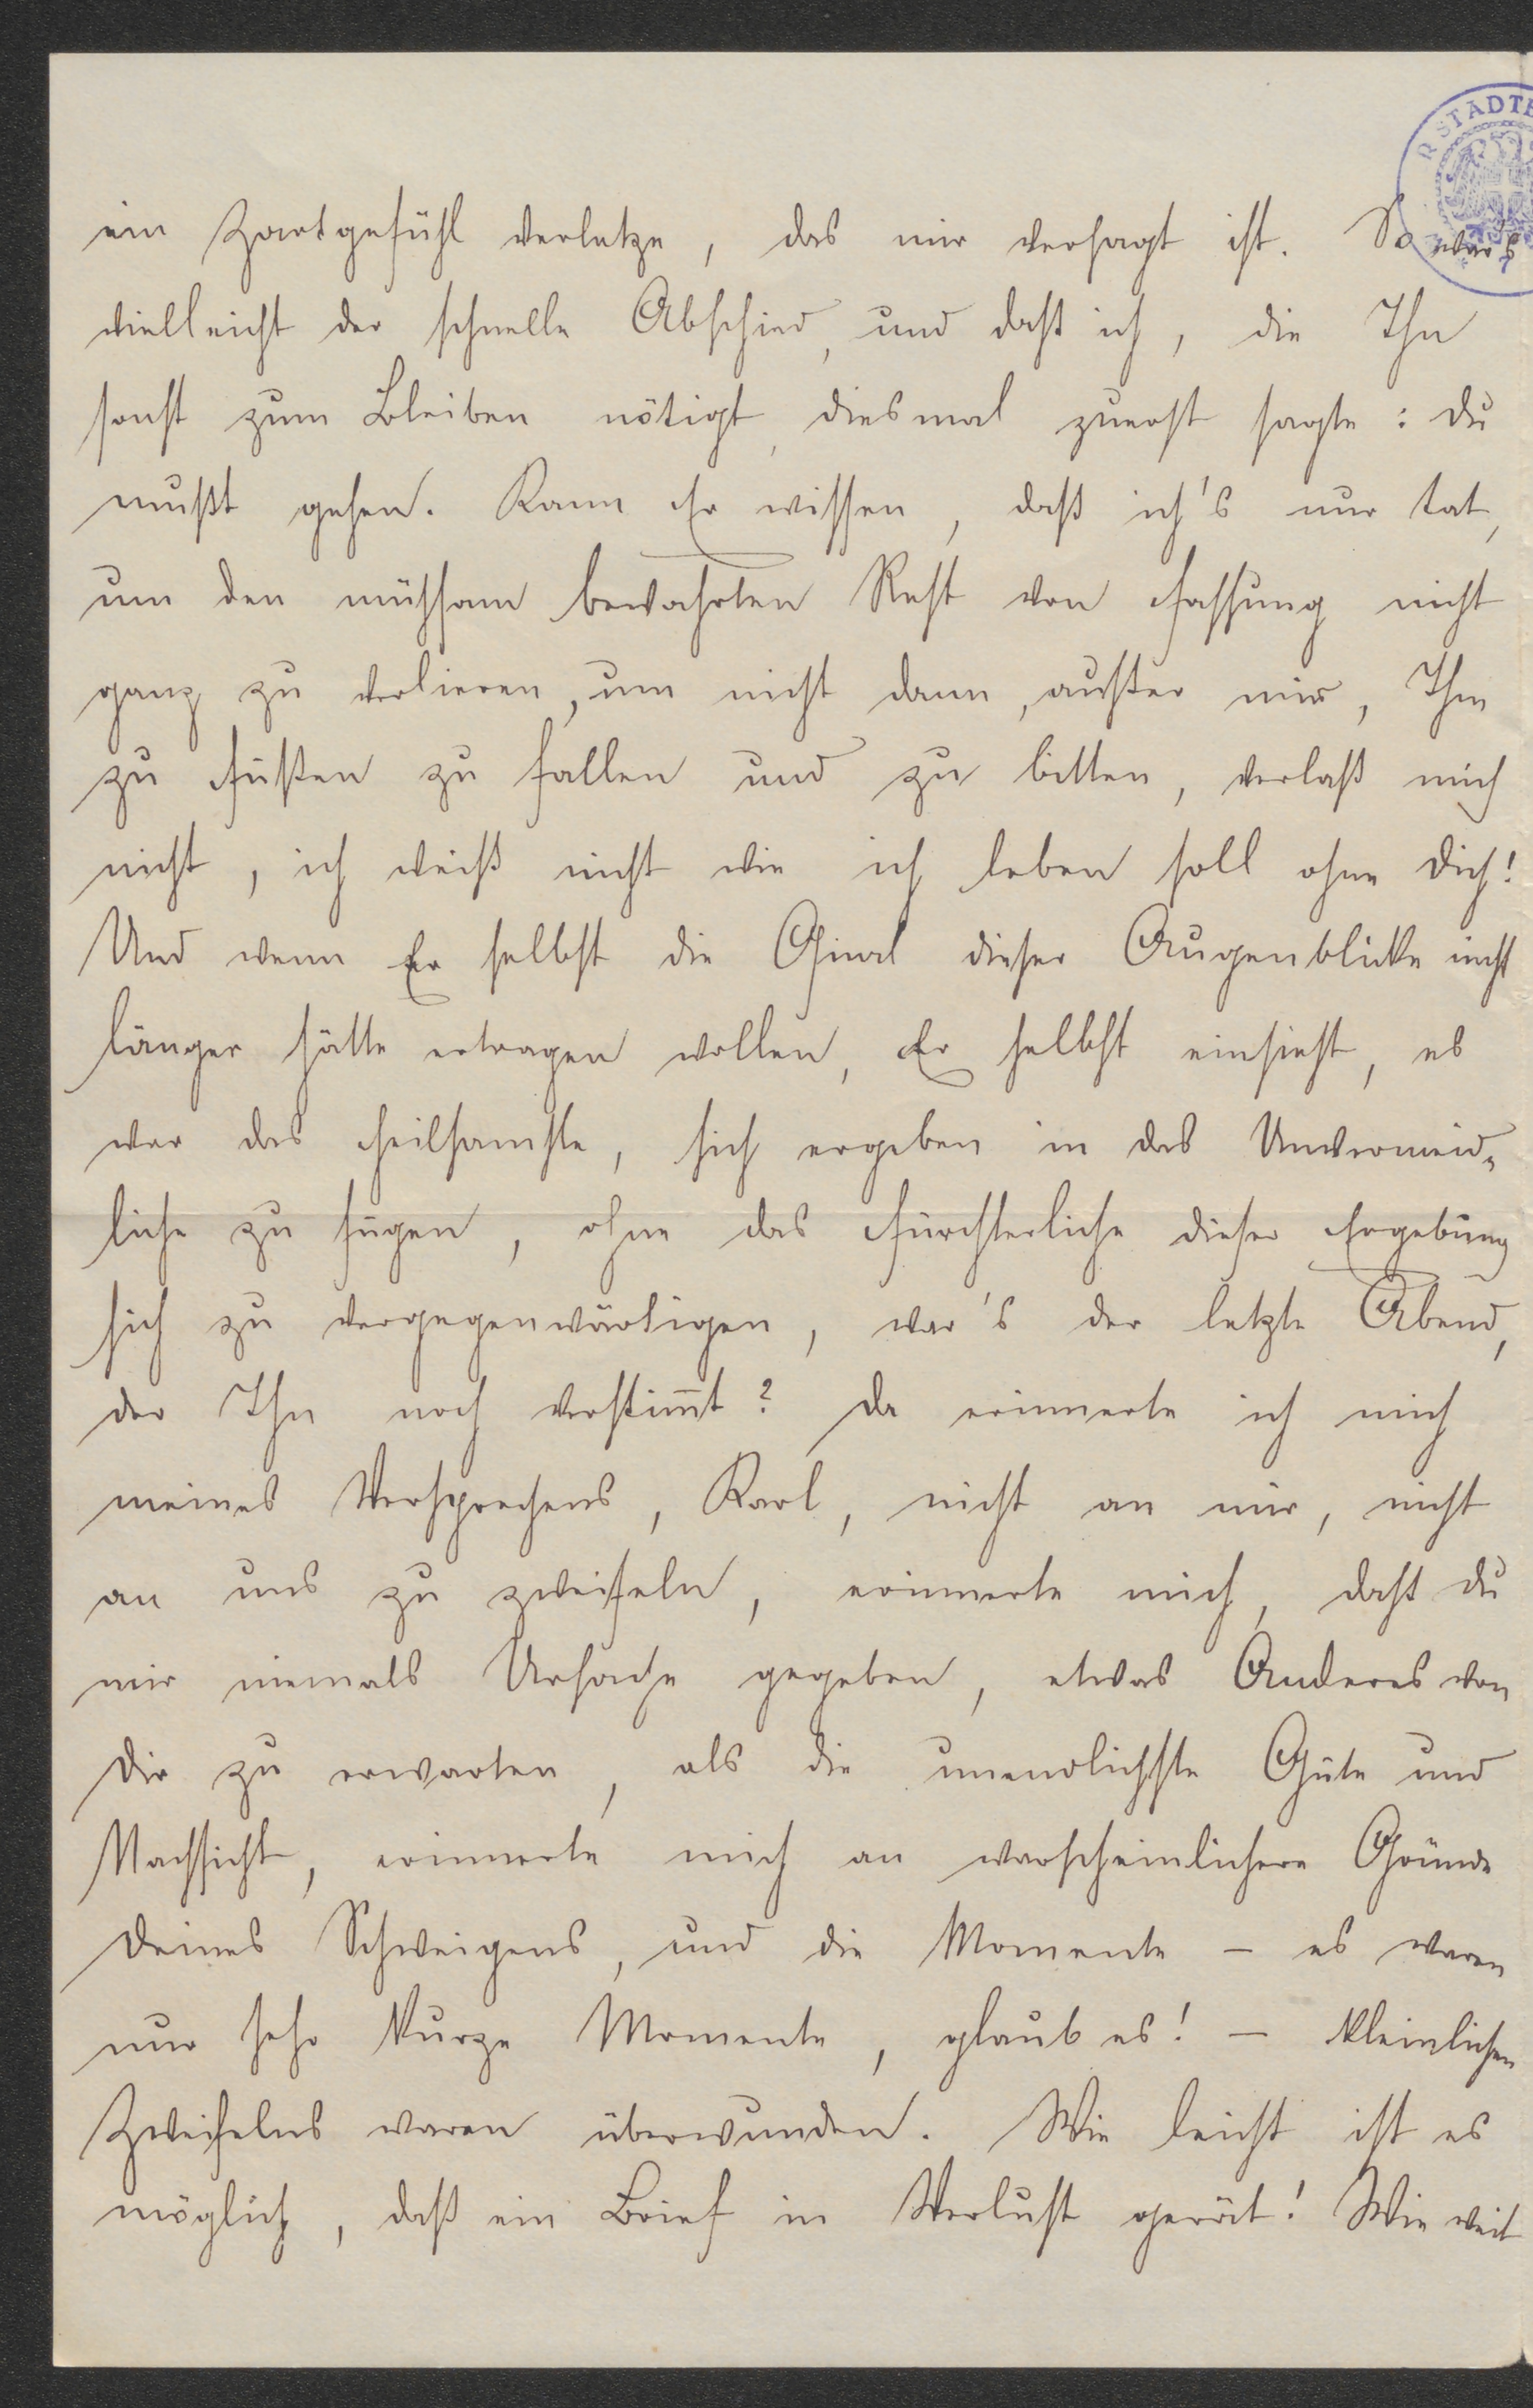 R STÄDTE
ein Zartgefühl verletze, das mir versagt ist. So war's
vielleicht der schnelle Abschied, und daß ich, die Ihn
sonst zum Bleiben nötigt, diesmal zuerst sagte: du
mußt gehen. Kann Er wissen, daß ich's nur tat,
um den mühsam bewahrten Rest von Fassung nicht
ganz zu verlieren, um nicht dann, außer mir, Ihm
zu Füßen zu fallen und zu bitten, verlaß mich
nicht, ich weiß nicht wie ich leben soll ohne dich!
Und wenn Er selbst die Qual dieser Augenblicke nicht
länger hätte ertragen wollen, Er selbst einsieht, es
war das Heilsamste, sich ergeben in das Unvermeid-
liche zu fügen, ohne das Fürchterliche dieser Ergebung
sich zu vergegenwärtigen, war's der letzte Abend,
der Ihn noch verstim̅t? Da erinnerte ich mich
meines Versprechens, Karl, nicht an mir, nicht
an uns zu zweifeln, erinnerte mich, daß du
mir niemals Ursache gegeben, etwas Anderes von
dir zu erwarten, als die unendlichste Güte und
Nachsicht, erinnerte mich an warscheinlichere Gründe
deines Schweigens, und die Momente – es waren
nur sehr kurze Momente, glaub es! – kleinlichen
Zweifelns waren überwunden. Wie leicht ist es
möglich, daß ein Brief in Verlust gerät! Wie weit